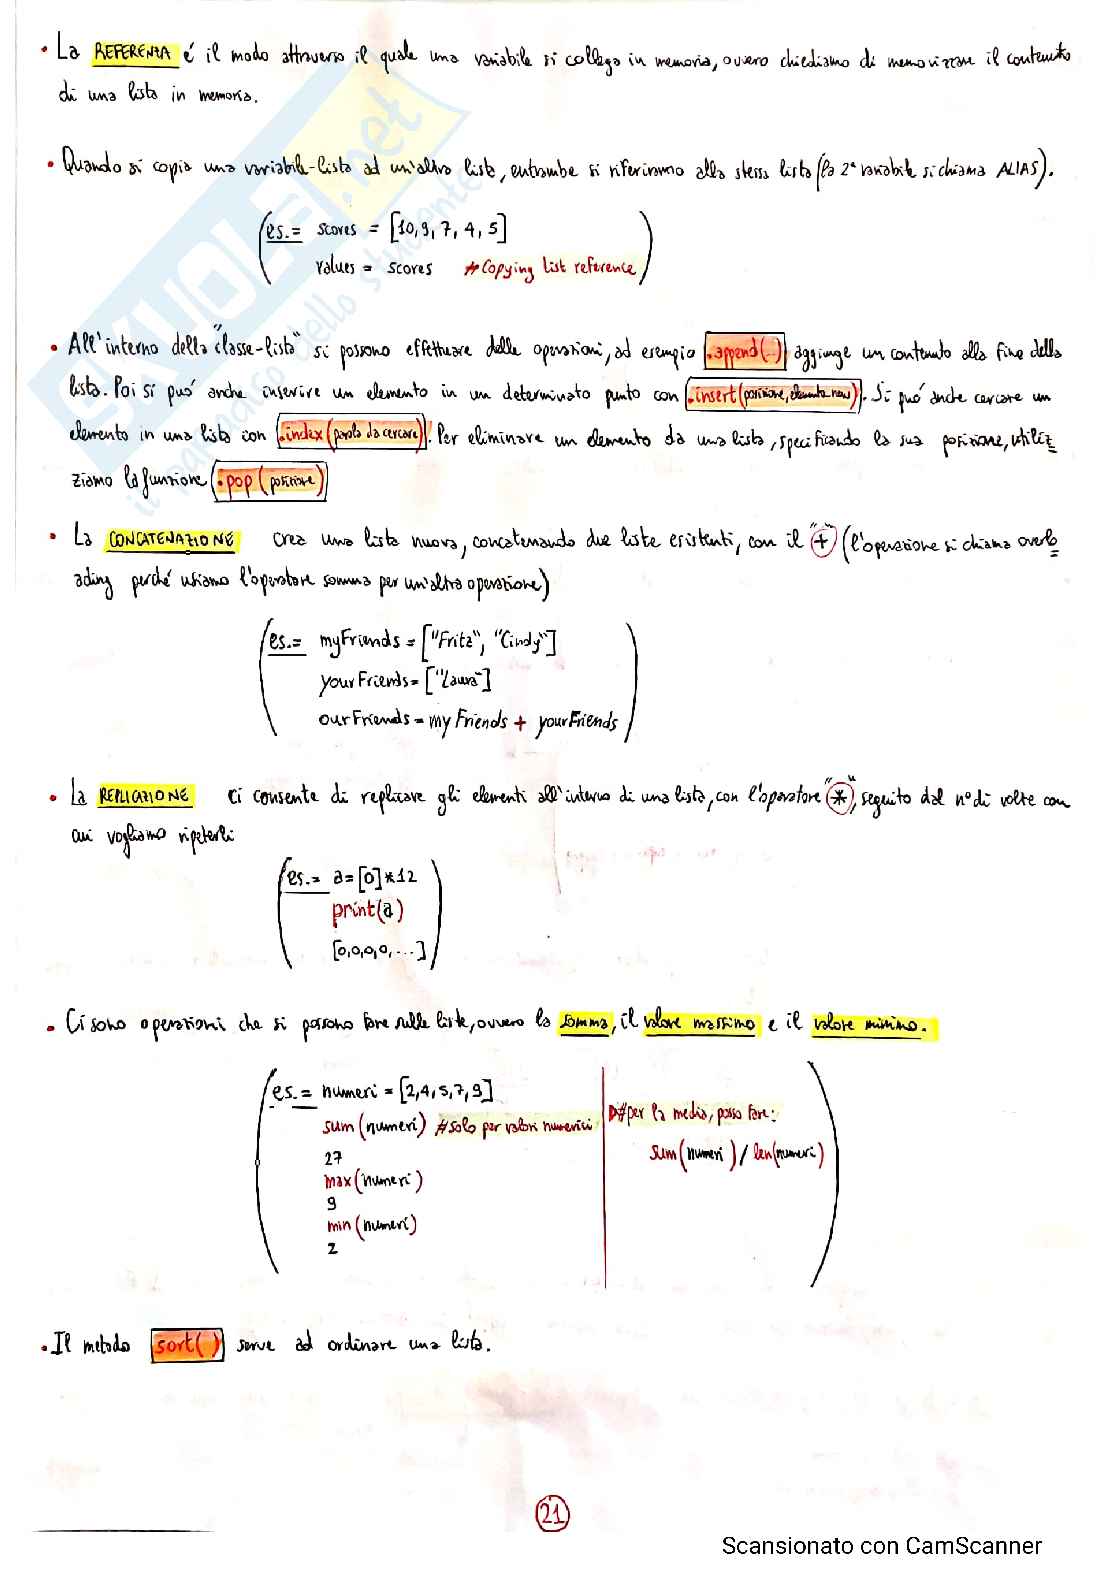 • La REFERENZA é il modo attraverso il quale una variabile si collega in memoria, ovvero chiediamo di memorizzare il contenuto
di una lista in memoria.
• Quando si copia una variabile-lista ad un'altra lista, entrambe si riferiranno alla stessa lista (la 2ª variabile si chiama ALIAS).
es.= scores = [10, 9, 7, 4, 5]
values = scores # Copying list reference
• All'interno della "classe-lista" si possono effettuare delle operazioni, ad esempio .append(..) aggiunge un contenuto alla fine della
lista. Poi si puó anche inserire un elemento in un determinato punto con .insert(posizione, elemento new). Si puó anche cercare un
elemento in una lista con .index(parola da cercare). Per eliminare un elemento da una lista, specificando la sua posizione, utiliz
ziamo la funzione .pop(posizione)
• La CONCATENAZIONE crea una lista nuova, concatenando due liste esistenti, con il "+" (l'operazione si chiama overlo
ading perché usiamo l'operatore somma per un'altra operazione)
es.= myFriends = ["Fritz", "Cindy"]
yourFriends = ["Laura"]
ourFriends = myFriends + yourFriends
• La REPLICAZIONE ci consente di replicare gli elementi all'interno di una lista, con l'operatore "*", seguito dal n° di volte con
cui vogliamo ripeterli
es.= a = [0]*12
print(a)
[0,0,0,0,...]
• Ci sono operazioni che si possono fare sulle liste, ovvero la somma, il valore massimo e il valore minimo.
es.= numeri = [2,4,5,7,9]
sum(numeri) #solo per valori numerici
27
max(numeri)
9
min(numeri)
2
#per la media, posso fare:
sum(numeri) / len(numeri)
• Il metodo sort() serve ad ordinare una lista.
21
Scansionato con CamScanner
SKUOLA.net
il paradiso dello studente